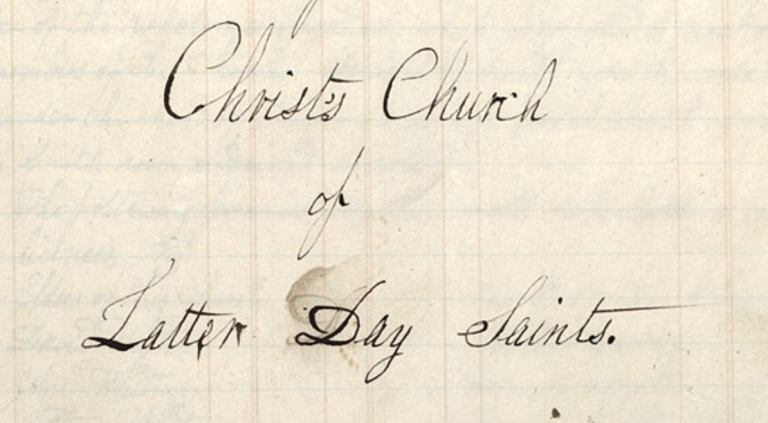 Christ's Church
of
Latter Day Saints.